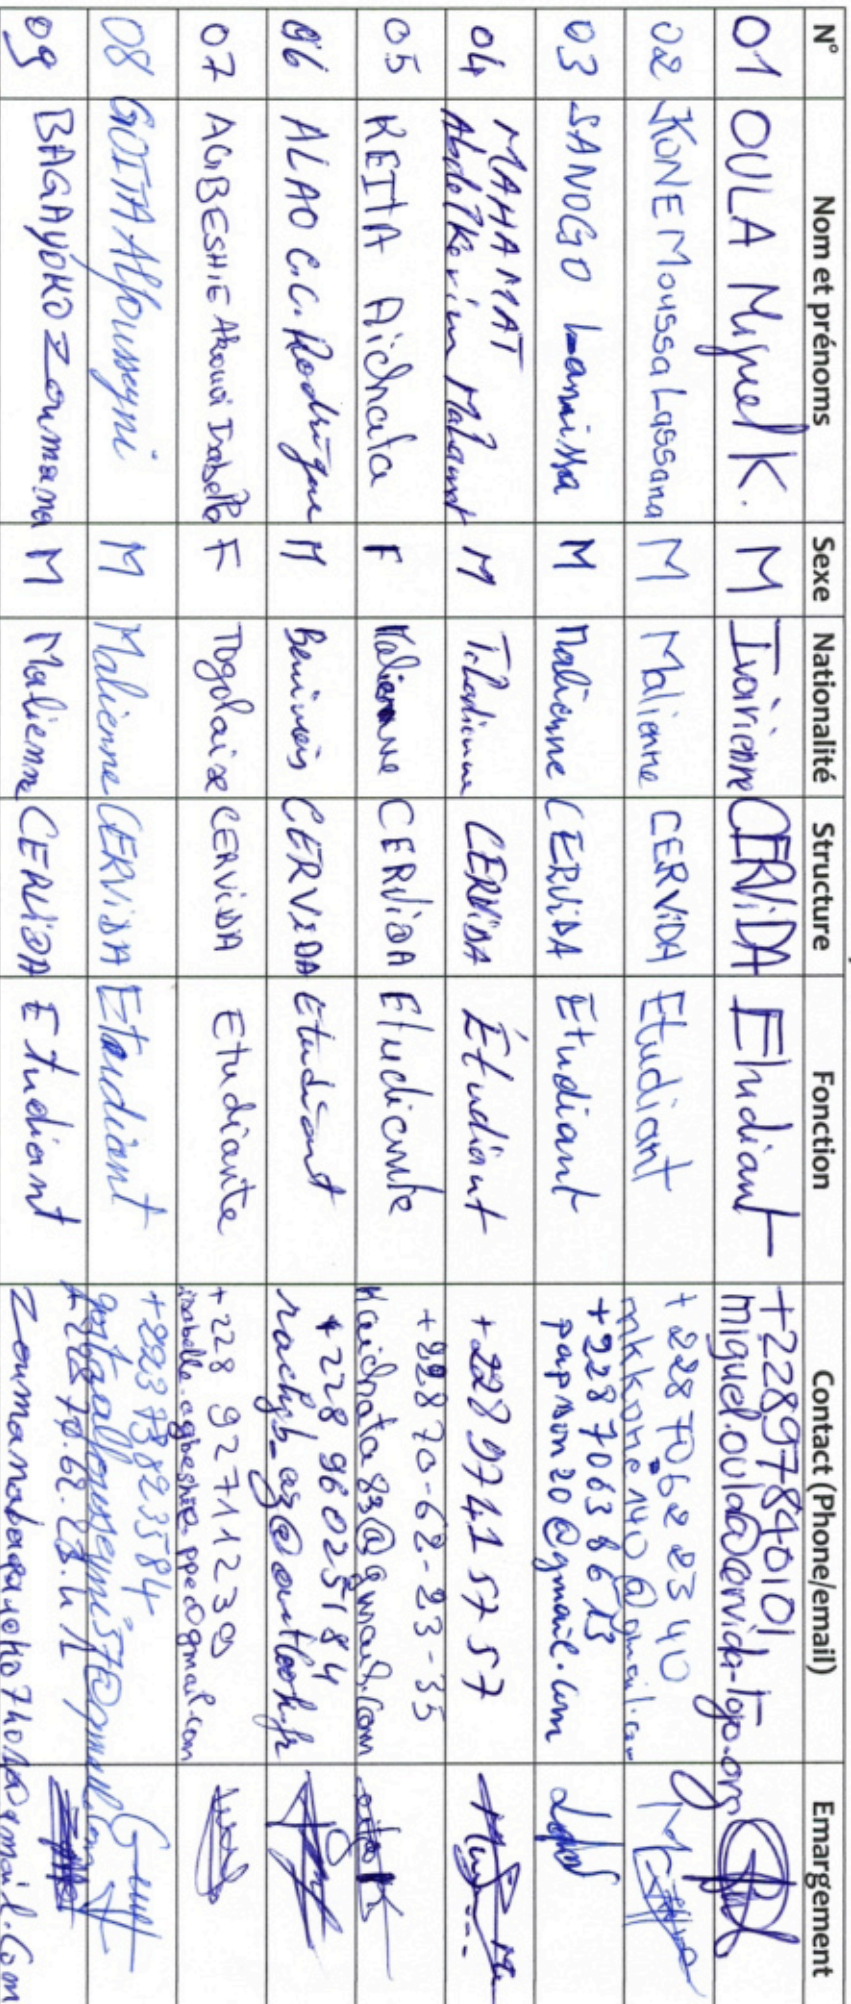 N° Nom et prénoms Sexe Nationalité Structure Fonction Contact (Phone/email) Emargement
01 OULA Miguel K. M Ivoirienne CERViDA Etudiant +22897840101
miguel.oula@cervida-togo.org
02 KONE Moussa Lassana M Malienne CERVIDA Etudiant +228 70622340
mkkone140@gmail.com
03 SANOGO Lamissa M Malienne CERViDA Etudiant +228 70638613
papson20@gmail.com
04 MAHAMAT
Abdelkerim Mahamat M Tchadienne CERViDA Étudiant +228 97415757
05 KEITA Aichata F Malienne CERViDA Etudiante +22870-62-23-35
Kaichata83@gmail.com
06 ALAO C.C. Rodrigue M Béninois CERVIDA Etudiant +228 96025184
rachyb_as@outlook.fr
07 AGBESHIE Akouvi Isabelle F Togolaise CERVIDA Etudiante +228 92711239
isabelle.agbeshie.ppe@gmail.com
08 GOITA Alfousseyni M Malienne CERViDA Etudiant +22373823584
goitaalfousseyni57@gmail.com
09 BAGAYOKO Zoumana M Malienne CERViDA Etudiant +228 70.62.23.41
Zoumanabagayoko7402@gmail.com